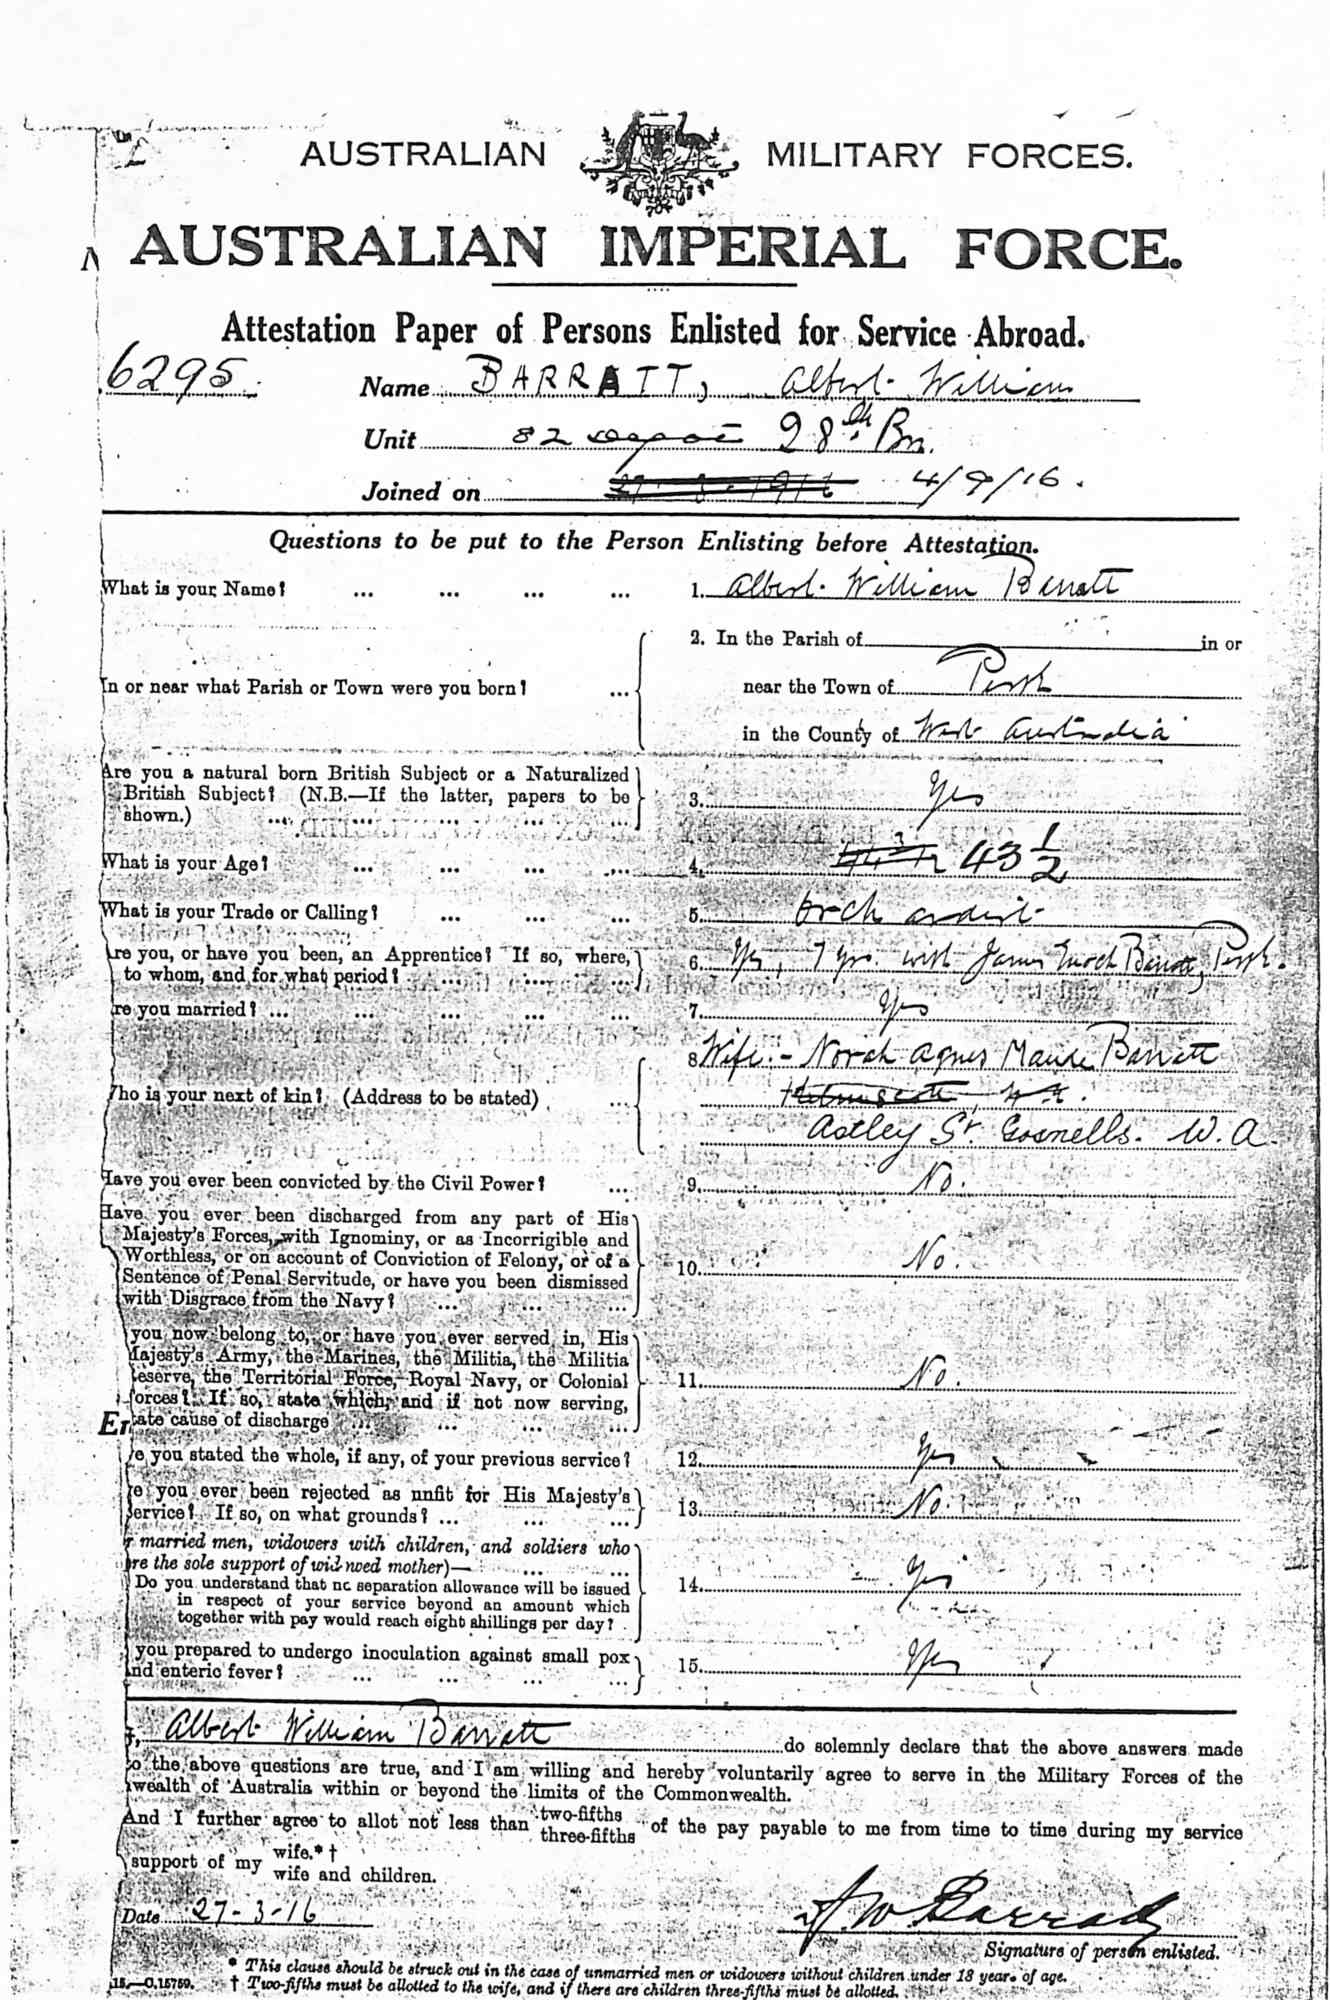 AUSTRALIAN MILITARY FORCES.
AUSTRALIAN IMPERIAL FORCE.
Attestation Paper of Persons Enlisted for Service Abroad.
6295 Name BARRATT, Albert William
Unit 82 Depot 28th Bn.
Joined on 4/9/16.
Questions to be put to the Person Enlisting before Attestation.
What is your Name? ... ... ... ... 1. Albert William Barratt
2. In the Parish of in or
In or near what Parish or Town were you born? ... near the Town of Perth
in the County of West Australia
Are you a natural born British Subject or a Naturalized
British Subject? (N.B.—If the latter, papers to be 3. Yes
shown.) ... ... ... ... ...
What is your Age? ... ... ... ... 4. 43 1/2
What is your Trade or Calling? ... ... ... 5. Orchardist
Are you, or have you been, an Apprentice? If so, where, 6. Yes, 7 yrs. with James Enoch Barratt, Perth.
to whom, and for what period? ... ... ...
re you married? ... ... ... ... 7. Yes
8. Wife - Norah Agnes Maude Barratt
Who is your next of kin? (Address to be stated) ... Kelmscott W.A.
Astley St. Gosnells. W.A.
Have you ever been convicted by the Civil Power? ... 9. No.
Have you ever been discharged from any part of His
Majesty's Forces, with Ignominy, or as Incorrigible and
Worthless, or on account of Conviction of Felony, or of a 10. No.
Sentence of Penal Servitude, or have you been dismissed
with Disgrace from the Navy? ... ... ...
you now belong to, or have you ever served in, His
Majesty's Army, the Marines, the Militia, the Militia
Reserve, the Territorial Force, Royal Navy, or Colonial 11. No.
Forces? If so, state which, and if not now serving,
Er tate cause of discharge ... ... ... ...
e you stated the whole, if any, of your previous service? 12. Yes
e you ever been rejected as unfit for His Majesty's 13. No.
Service? If so, on what grounds? ... ... ...
r married men, widowers with children, and soldiers who
re the sole support of widowed mother)— ... ...
Do you understand that no separation allowance will be issued 14. Yes
in respect of your service beyond an amount which
together with pay would reach eight shillings per day?
you prepared to undergo inoculation against small pox 15. Yes
and enteric fever? ... ... ... ...
I, Albert William Barratt do solemnly declare that the above answers made
to the above questions are true, and I am willing and hereby voluntarily agree to serve in the Military Forces of the
wealth of Australia within or beyond the limits of the Commonwealth.
And I further agree to allot not less than two-fifths
three-fifths of the pay payable to me from time to time during my service
support of my wife.* †
wife and children.
Date 27-3-16
Signature of person enlisted.
* This clause should be struck out in the case of unmarried men or widowers without children under 18 years of age.
15.—C.15750. † Two-fifths must be allotted to the wife, and if there are children three-fifths must be allotted.